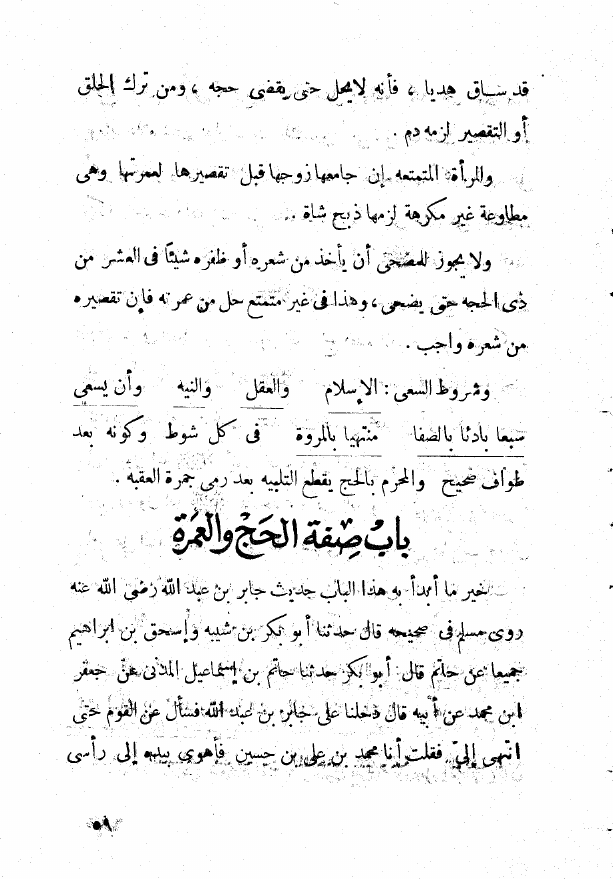 قد ساق هديا ، فأنه لايحل حتى يقضى حجه ، ومن ترك الحلق
أو التقصير لزمه دم .
والمرأة المتمتعه إن جامعها زوجها قبل تقصيرها لعمرتها وهى
مطاوعة غير مكرهة لزمها ذبح شاة ..
ولا يجوز للمضحى أن يأخذ من شعره أو ظفره شيئا فى العشر من
ذى الحجه حتى يضحى ، وهذا فى غير متمتع حل من عمرته فإن تقصيره
من شعره واجب .
وشروط السعى : الإسلام والعقل والنيه وأن يسعى
سبعا بادئا بالصفا منتهيا بالمروة فى كل شوط وكونه بعد
طواف صحيح والمحرم بالحج يقطع التلبيه بعد رمى جمرة العقبه .
باب صفة الحج والعمرة
خير ما أبدأ به هذا الباب حديث جابر بن عبد الله رضى الله عنه
روى مسلم فى صحيحه قال حدثنا أبو بكر بن شيبه وإسحق بن ابراهيم
جميعا عن حاتم قال أبو بكر حدثنا حاتم بن إسماعيل المدنى عن جعفر
ابن محمد عن أبيه قال دخلنا على جابر بن عبد الله فسأل عن القوم حتى
انتهى إلىّ فقلت أنا محمد بن على بن حسين فأهوى بيده إلى رأسى
٥٩